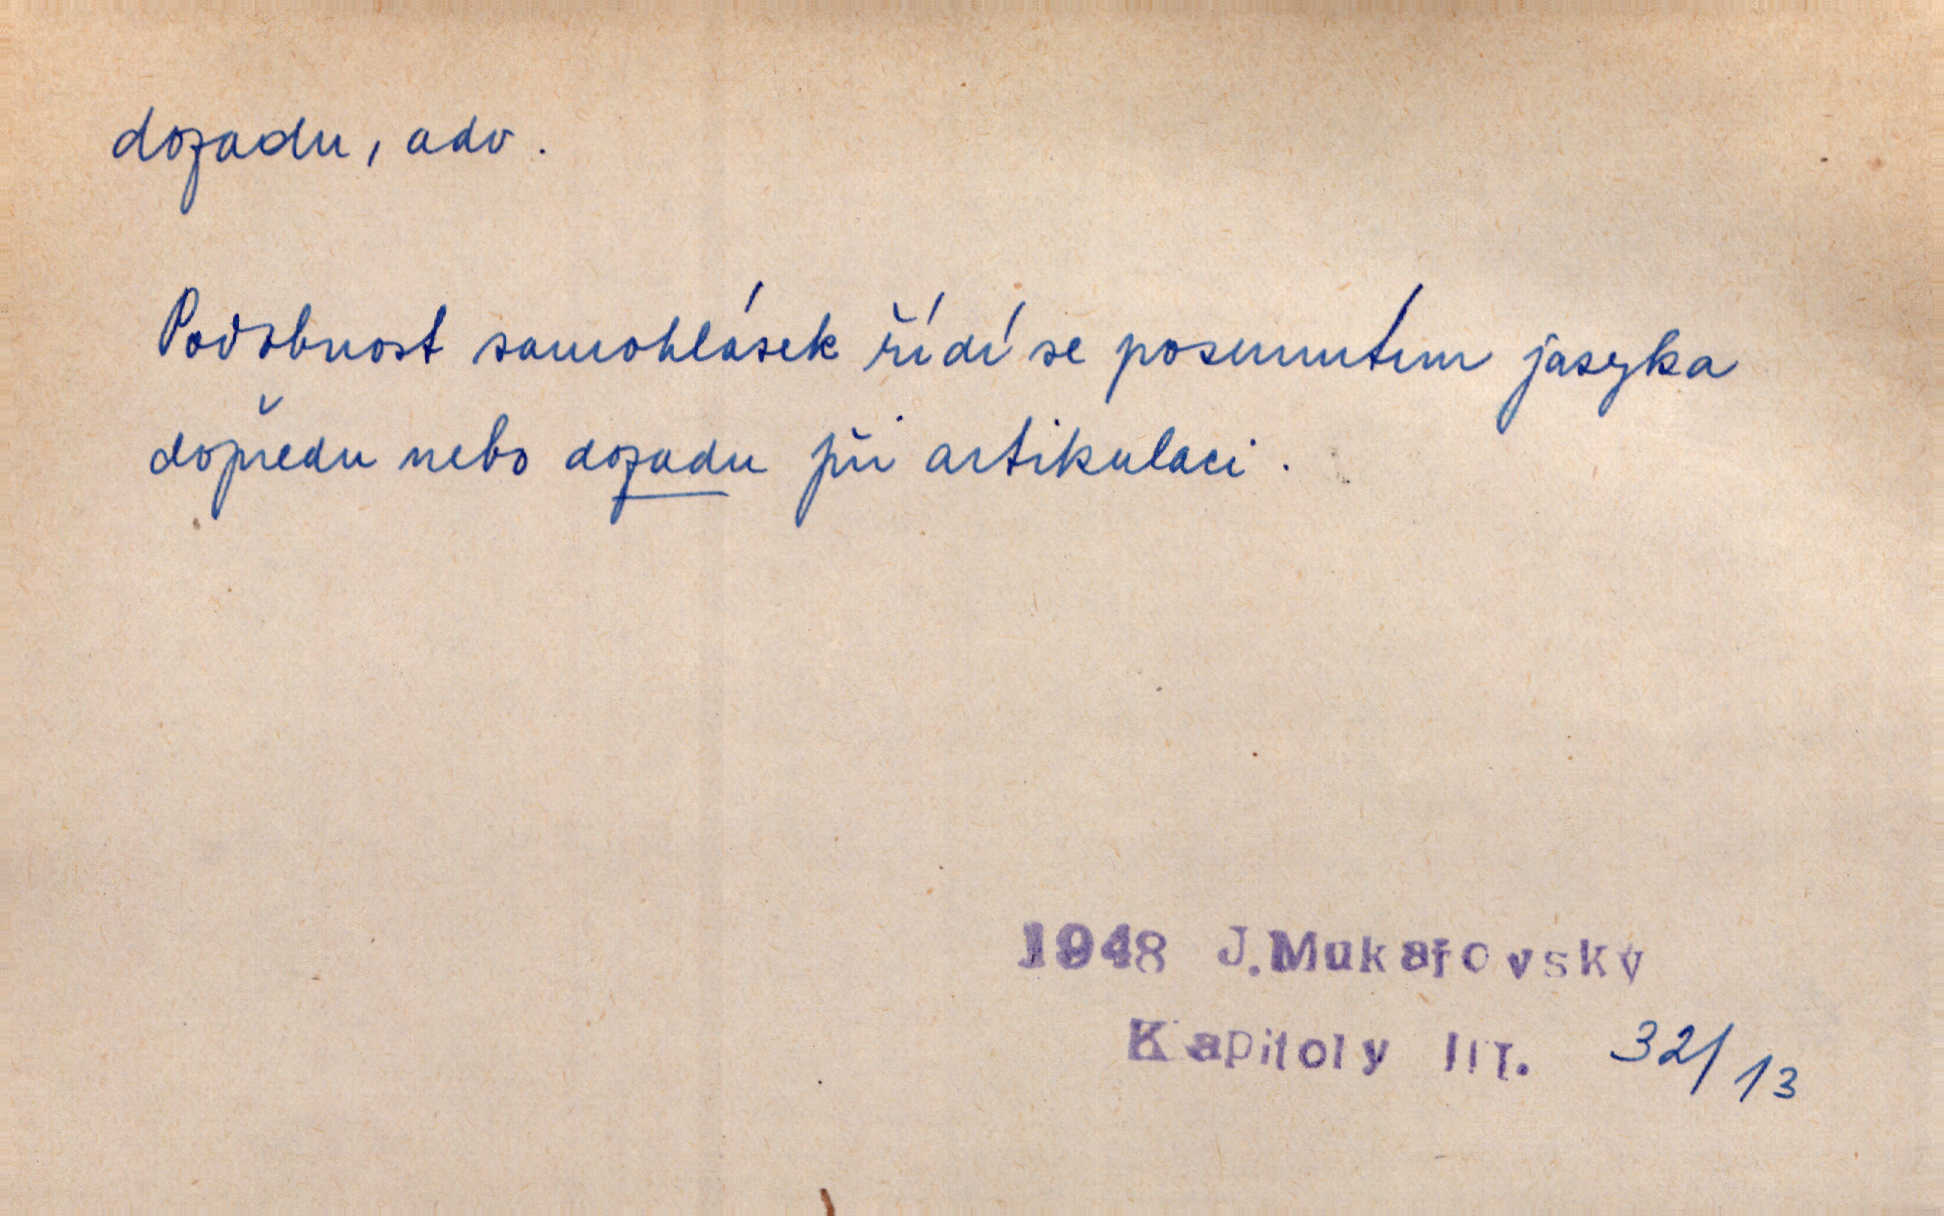 dozadu, adv.
Podobnost samohlásek řídí se posunutím jazyka
dopředu nebo dozadu při artikulaci.
1948 J.Mukařovský
Kapitoly III. 32/13